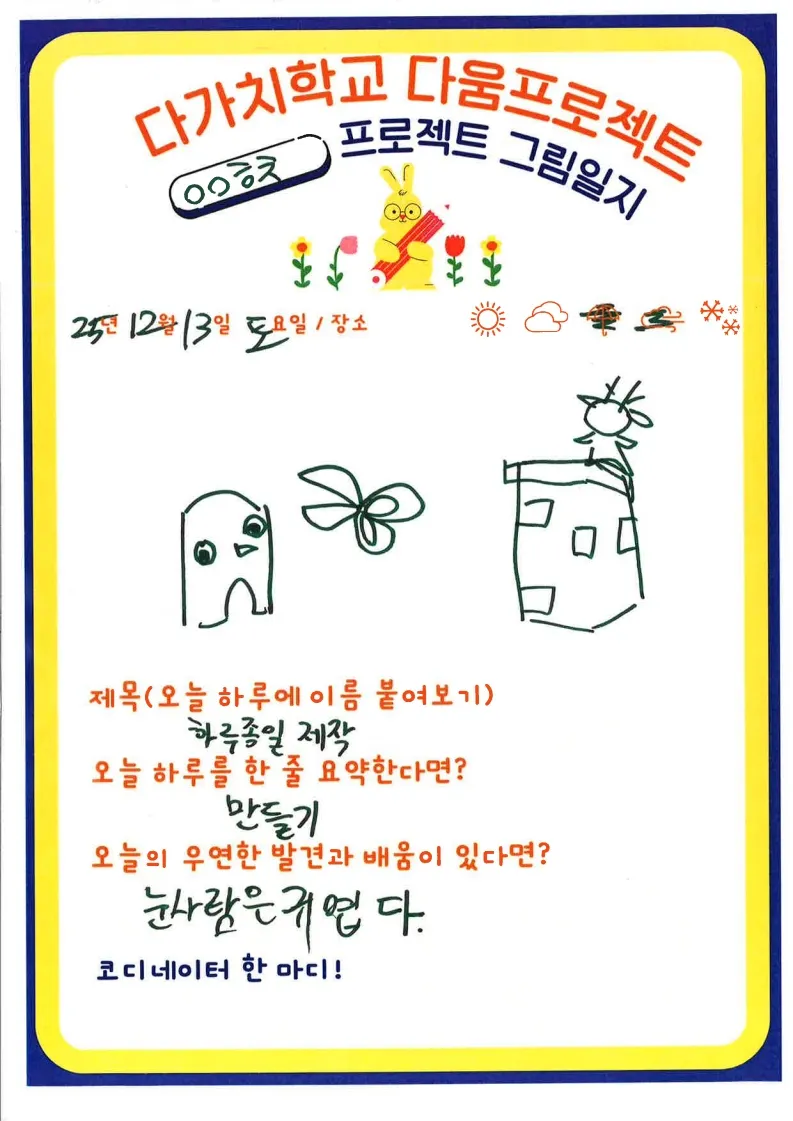 다가치학교 다움프로젝트
프로젝트 그림일지
25년 12월 13일 토요일 / 장소
제목(오늘 하루에 이름 붙여보기)
하루종일 제작
오늘 하루를 한 줄 요약한다면?
만들기
오늘의 우연한 발견과 배움이 있다면?
눈사람은 귀엽다.
코디네이터 한 마디!